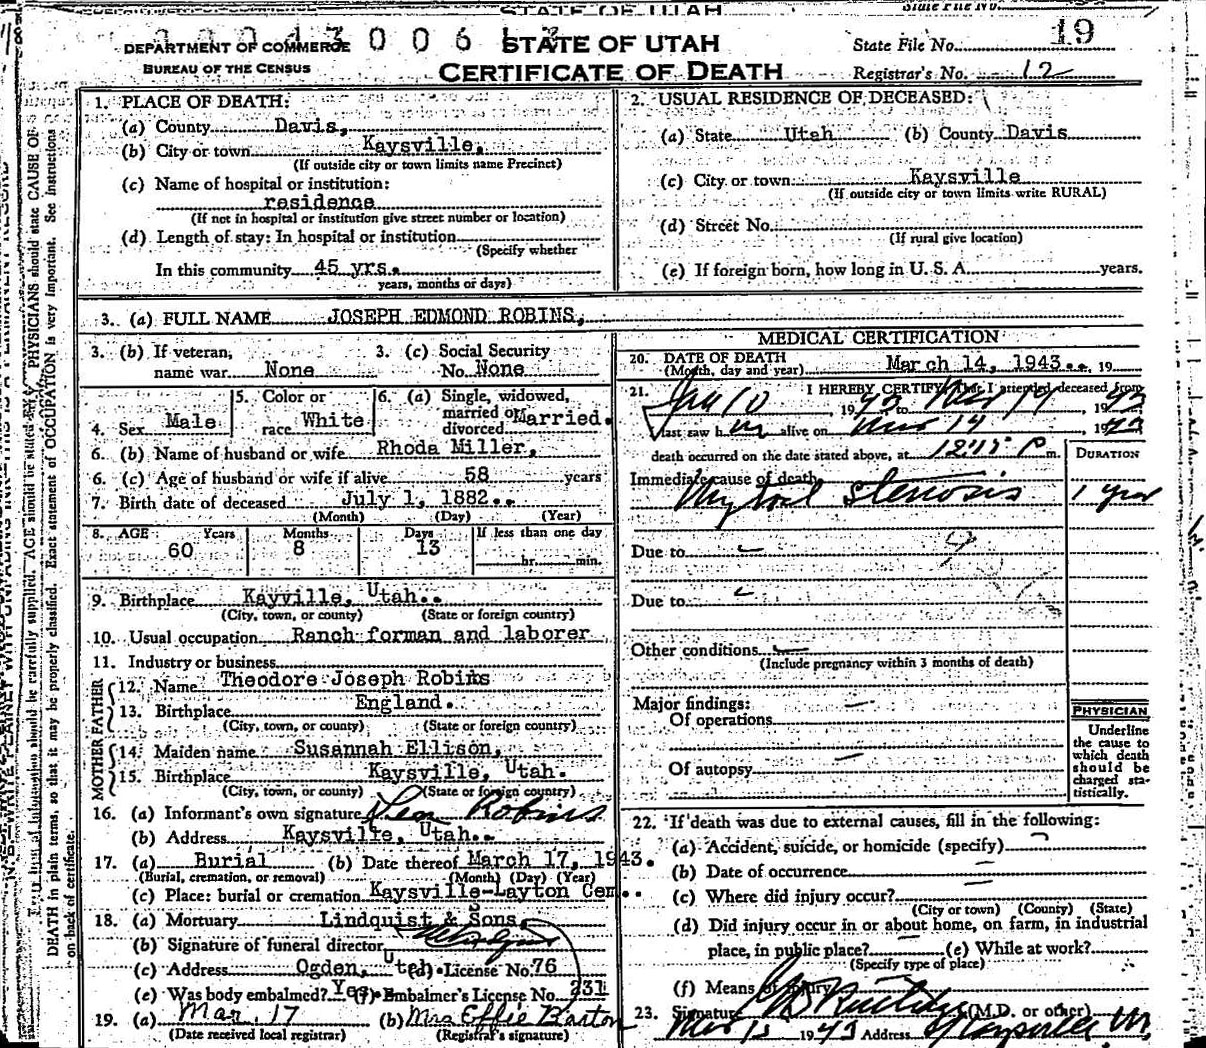 STATE OF UTAH
State File No.
DEPARTMENT OF COMMERCE
BUREAU OF THE CENSUS
STATE OF UTAH
CERTIFICATE OF DEATH
State File No. 19
Registrar's No. 12
1. PLACE OF DEATH:
(a) County Davis,
(b) City or town Kaysville,
(If outside city or town limits name Precinct)
(c) Name of hospital or institution:
residence
(If not in hospital or institution give street number or location)
(d) Length of stay: In hospital or institution
(Specify whether
In this community 45 yrs.
years, months or days)
2. USUAL RESIDENCE OF DECEASED:
(a) State Utah (b) County Davis
(c) City or town Kaysville
(If outside city or town limits write RURAL)
(d) Street No.
(If rural give location)
(e) If foreign born, how long in U. S. A. years.
3. (a) FULL NAME JOSEPH EDMOND ROBINS,
3. (b) If veteran, name war None
3. (c) Social Security No. None
4. Sex Male
5. Color or race White
6. (a) Single, widowed, married or divorced Married.
6. (b) Name of husband or wife Rhoda Miller,
6. (c) Age of husband or wife if alive 58 years
7. Birth date of deceased July 1, 1882..
(Month) (Day) (Year)
8. AGE Years Months Days If less than one day
60 8 13 hr. min.
9. Birthplace Kayville, Utah..
(City, town, or county) (State or foreign country)
10. Usual occupation Ranch forman and laborer
11. Industry or business
FATHER
12. Name Theodore Joseph Robins
13. Birthplace England.
(City, town, or county) (State or foreign country)
MOTHER
14. Maiden name Susannah Ellison,
15. Birthplace Kaysville, Utah.
(City, town, or county) (State or foreign country)
16. (a) Informant's own signature Robins
(b) Address Kaysville, Utah..
17. (a) Burial (b) Date thereof March 17, 1943.
(Burial, cremation, or removal) (Month) (Day) (Year)
(c) Place: burial or cremation Kaysville-Layton Cem..
18. (a) Mortuary Lindquist & Sons,
(b) Signature of funeral director
(c) Address Ogden, Utah. (d) License No. 76
(e) Was body embalmed? Yes. (f) Embalmer's License No. 231
19. (a) Mar. 17 (b) Mrs Effie Barton
(Date received local registrar) (Registrar's signature)
MEDICAL CERTIFICATION
20. DATE OF DEATH
(Month, day and year) March 14, 1943.., 19
21. I HEREBY CERTIFY, That I attended deceased from
Jan 10, 1943 to Mar 14, 1943
I last saw h im alive on Mar 14, 1943
death occurred on the date stated above, at P m.
DURATION
Immediate cause of death
Mytral stenosis 1 year
Due to
Due to
Other conditions
(Include pregnancy within 3 months of death)
Major findings:
Of operations
Of autopsy
PHYSICIAN
Underline
the cause to
which death
should be
charged sta-
tistically.
22. If death was due to external causes, fill in the following:
(a) Accident, suicide, or homicide (specify)
(b) Date of occurrence
(c) Where did injury occur?
(City or town) (County) (State)
(d) Did injury occur in or about home, on farm, in industrial
place, in public place? (e) While at work?
(Specify type of place)
(f) Means of injury
23. Signature (M.D. or other)
1943 Address Kaysville, Ut
PHYSICIANS should state CAUSE OF
DEATH in plain terms, so that it may be properly classified. Exact statement of OCCUPATION is very important. See instructions
on back of certificate.